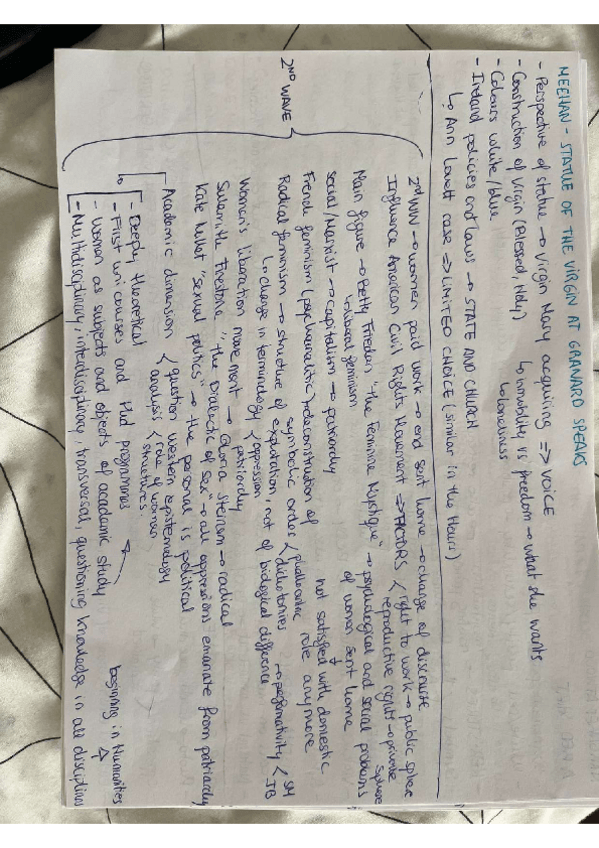 MEEHAN - STATUE OF THE VIRGIN AT GRANARD SPEAKS
- Perspective of statue → Virgin Mary acquiring => VOICE
- Construction of virgin (Blessed, Holy) ↳ immobility vs freedom → what she wants
↳ loneliness
- Colours white/blue
- Ireland policies and laws → STATE AND CHURCH
↳ Ann Lovett case => LIMITED CHOICE (similar in the Hours)
2ND WAVE
2nd WW → women paid work → end sent home → change of discourse
Influence American Civil Rights Movement => FACTORS < right to work → public sphere
reproductive rights → private sphere
Main figure → Betty Friedan "The Feminine Mystique" → psychological and social problems
of women sent home
↳ liberal feminism
↓
not satisfied with domestic
role anymore
Social/Marxist → capitalism → patriarchy
French feminism (psychoanalitic) → deconstruction of
symbolic order < phallocentric
dichotomies → performativity < SH
JB
Radical feminism → structure of explotation, not of biological difference
↳ change in terminology < oppression
patriarchy
Women's liberation movement → Gloria Steinem → radical
Sulamith Firestone "The Dialectic of Sex" → all oppressions emanate from patriarchy
Kate Millet "sexual politics" → the personal is political
Academic dimension < question western epistemology
analysis < role of women
structures.
↳ - Deeply theoretical
- First uni courses and PhD programmes
- Women as subjects and objects of academic study
beginning in Humanities
- Multidisciplinary, interdisciplinary, transversal, questioning knowledge in all disciplines